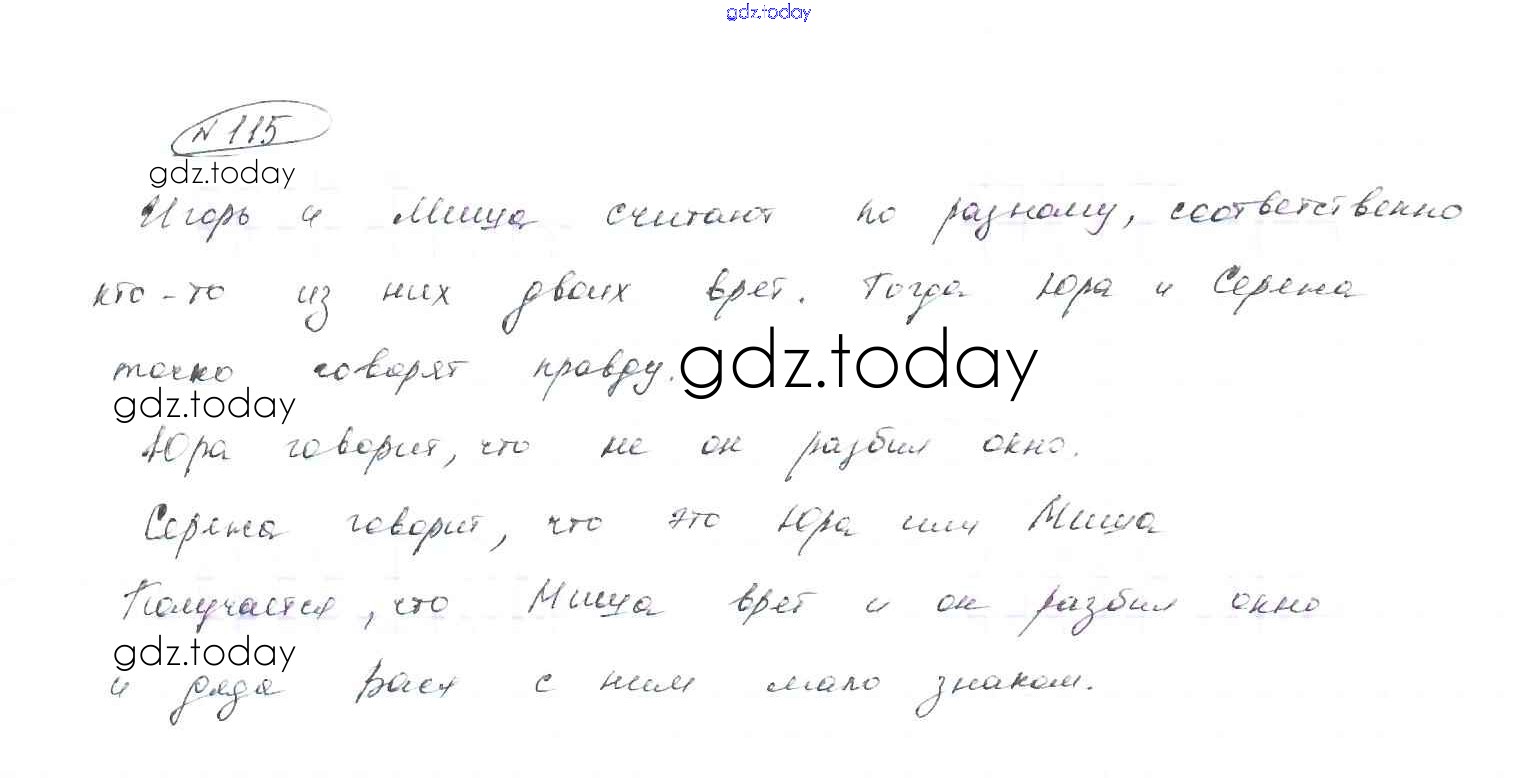 gdz.today
N 115
gdz.today
Игорь и Миша считают по разному, соответственно
кто-то из них двоих врет. Тогда Юра и Сережа
точно говорят правду.
gdz.today
gdz.today
Юра говорит, что не он разбил окно.
Сережа говорит, что это Юра или Миша
Получается, что Миша врет и он разбил окно
gdz.today
и дядя Вася с ним мало знаком.